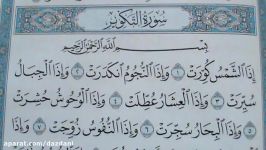 سُورَةُ التَّكْوِيرِ
بِسْمِ اللَّهِ الرَّحْمَٰنِ الرَّحِيمِ
إِذَا الشَّمْسُ كُوِّرَتْ ١ وَإِذَا النُّجُومُ انْكَدَرَتْ ٢ وَإِذَا الْجِبَالُ
سُيِّرَتْ ٣ وَإِذَا الْعِشَارُ عُطِّلَتْ ٤ وَإِذَا الْوُحُوشُ حُشِرَتْ
٥ وَإِذَا الْبِحَارُ سُجِّرَتْ ٦ وَإِذَا النُّفُوسُ زُوِّجَتْ ٧ وَإِذَا
aparat.com/dazdani